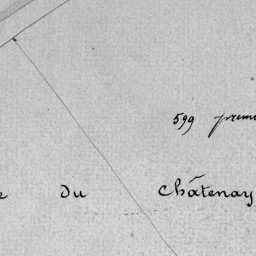 599 premi
e du Châtenay